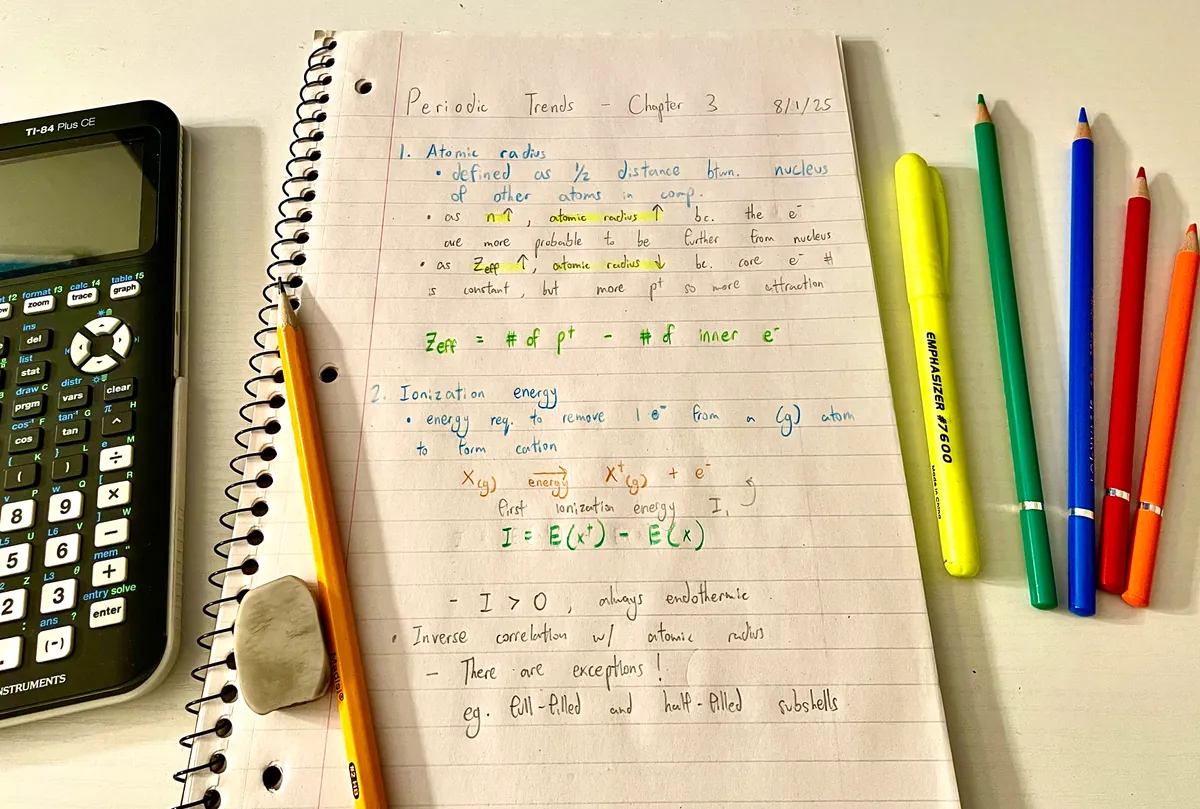 Periodic Trends - Chapter 3 8/1/25
1. Atomic radius
• defined as 1/2 distance btwn. nucleus
of other atoms in comp.
• as n↑, atomic radius ↑ bc. the e⁻
are more probable to be further from nucleus
• as Zeff ↑, atomic radius ↓ bc. core e⁻ #
is constant, but more p⁺ so more attraction
Zeff = # of p⁺ - # of inner e⁻
2. Ionization energy
• energy req. to remove 1 e⁻ from a (g) atom
to form cation
X(g) → energy X⁺(g) + e⁻
first ionization energy I₁
I = E(x⁺) - E(x)
- I > 0, always endothermic.
• Inverse correlation w/ atomic radius
- There are exceptions!
eg. full-filled and half-filled subshells
TI-84 Plus CE
f2 format f3 calc f4 table f5
zoom trace graph
ins
del
list
stat
draw C distr
prgm vars clear
cos⁻¹ F tan⁻¹ G π H
cos tan ^
{ K } L e M
( ) ÷
v P w Q [ R
8 9 ×
L5 U L6 V W
5 6 −
Z L3 θ mem "
2 3 +
ans ? entry solve
(-) enter
NSTRUMENTS
EMPHASIZER #7600
Made in China
#2 HB